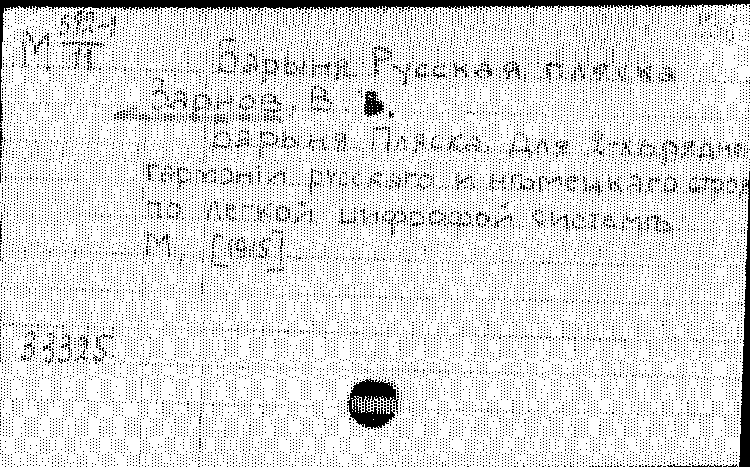 М
П
Барыня Русская пляска
В.
Барыня Пляска. Для
гармоніи русскаго и нѣмецкаго строя
по легкой цифровой системѣ
М. [1915]
33325